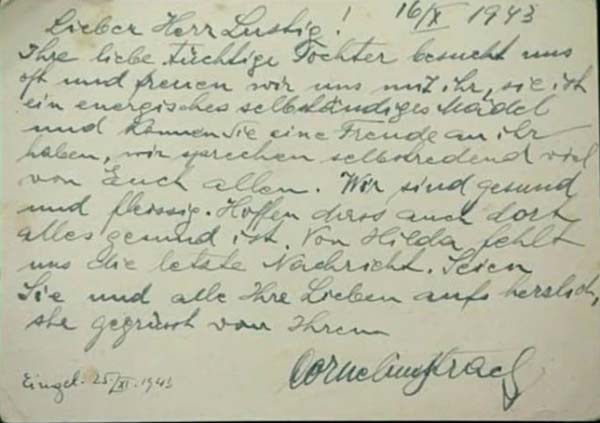 Lieber Herr Lustig! 16/X 1943
Ihre liebe tüchtige Tochter besucht uns
oft und freuen wir uns mit ihr, sie ist
ein energisches selbständiges Mädel
und können Sie eine Freude an ihr
haben, wir sprechen selbstredend viel
von Euch allen. Wir sind gesund
und fleissig. Hoffen dass auch dort
alles gesund ist. Von Hilda fehlt
uns die letzte Nachricht. Seien
Sie und alle Ihre Lieben aufs herzlich,
ste gegrüsst von Ihrem
Eingel. 25/XI. 1943